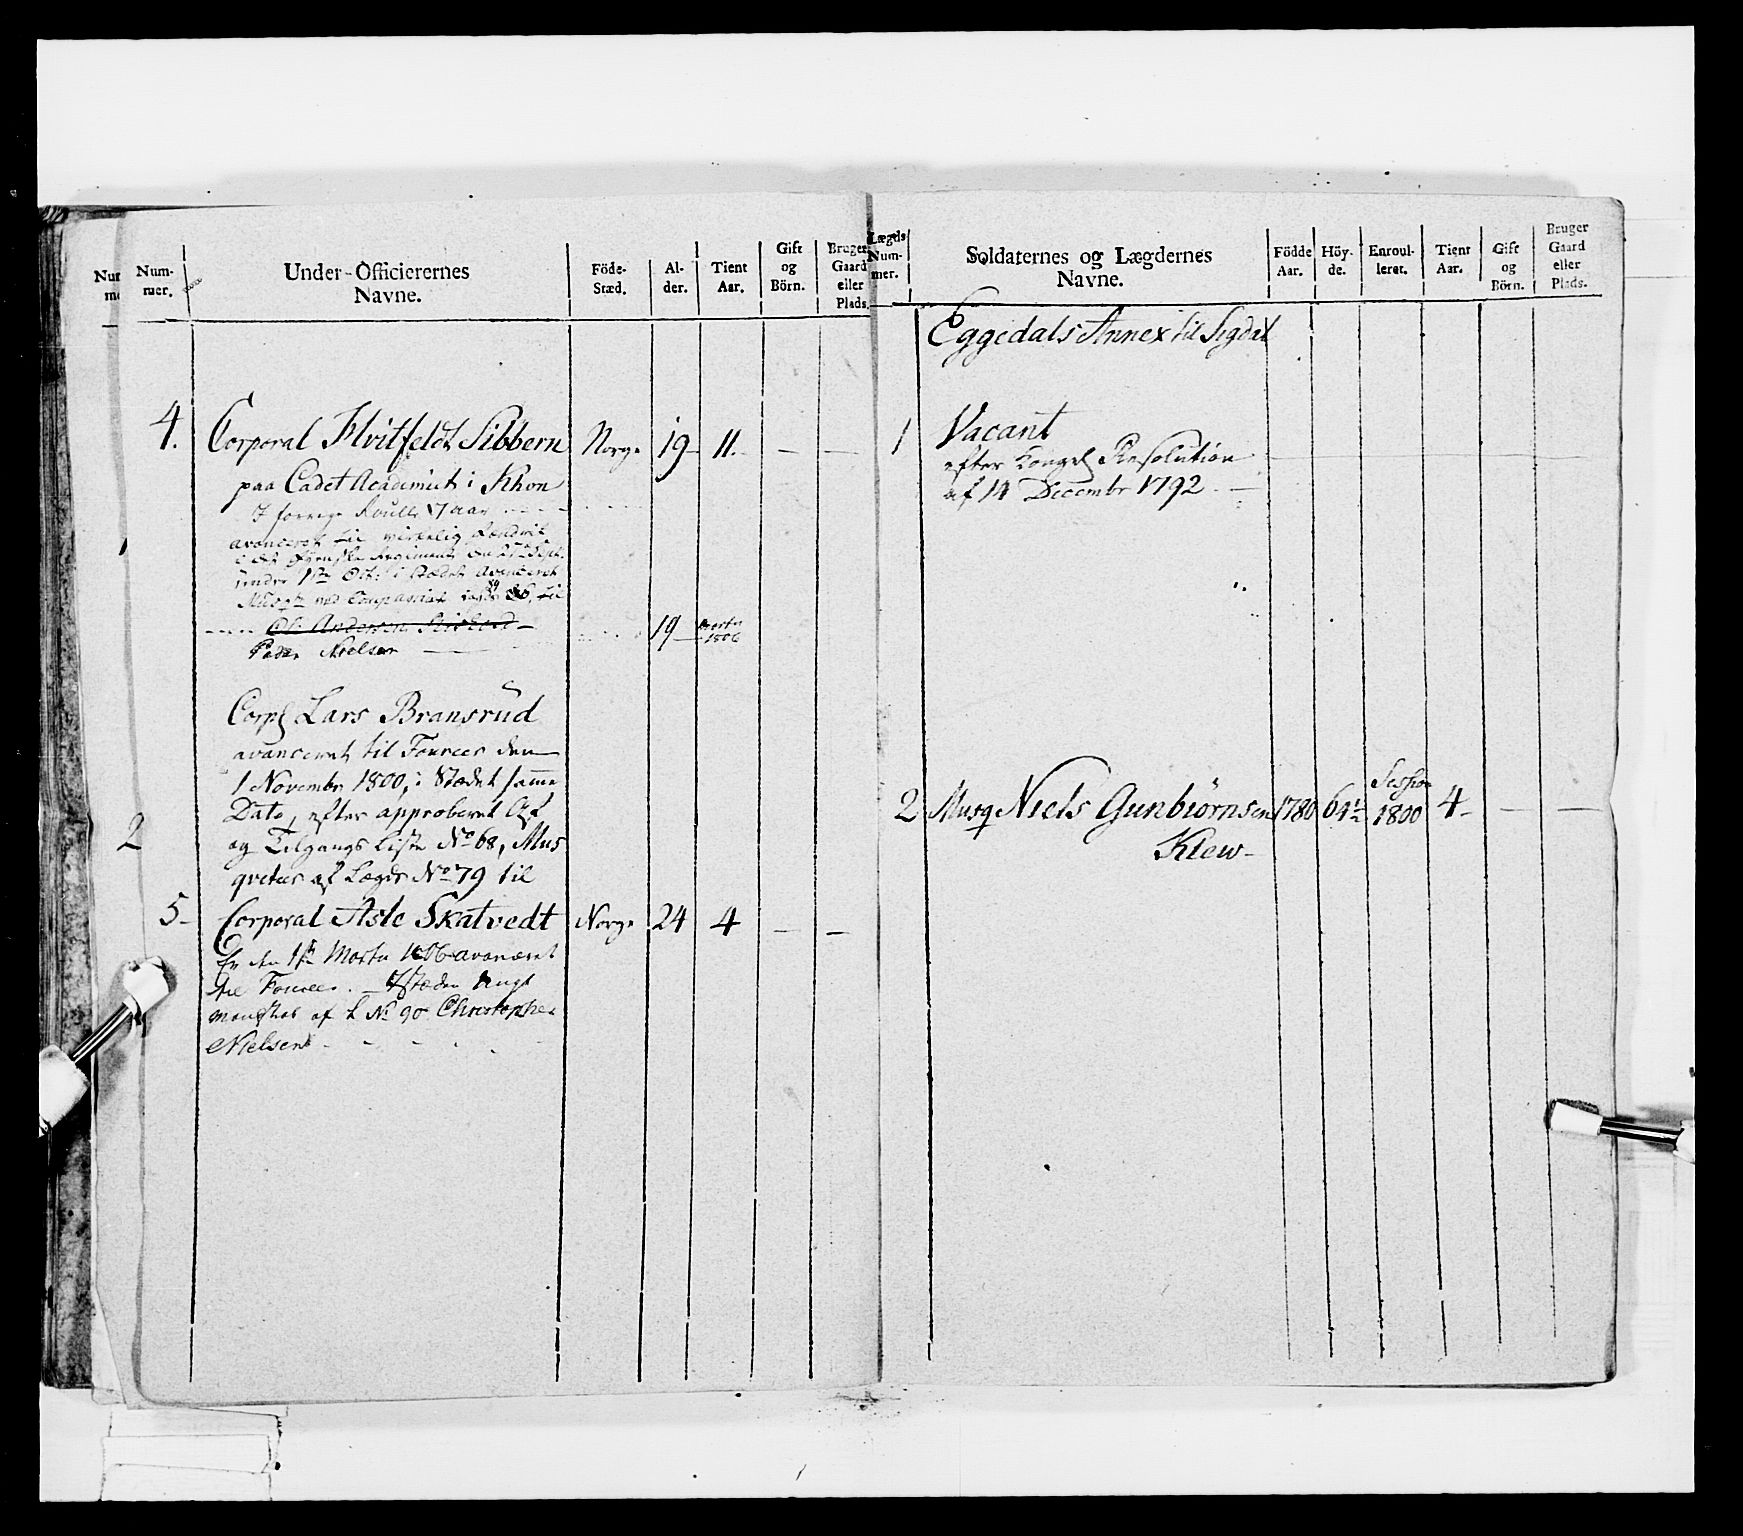 Num-
mer.
Under-Officierernes
Navne.
Föde-
Stæd.
Al-
der.
Tient
Aar.
Gift
og
Börn.
Bruger
Gaard
eller
Plads.
4. Corporal Hvitfeldt Sibbern Norge 19 11. — —
paa Cadet Academiet i Khvn
I forrige Roulle 7 aar
avanceret til virkelig
Regiment den 27de Sept.
1ste Oct: i Stædet avanceret
Musqtr ved Compagniet
Ole Andersen
Peder Nielsen — 19 — 1806
Corpl Lars Bransrud
avanceret til Foureer den
1 Novembr 1800, i Stædet samme
Dato, efter approberet Af
og Tilgangs Liste No 68, Mus
qveteer af Lægds No 79 til
2
5- Corporal Asle Skatvedt Norge 24 4 — —
Er den 1ste Martii 1806 avanceret
til Foureer. — I stæden
mandskab af L No 90 Christopher
Nielsen
Lægds
Num-
mer.
Soldaternes og Lægdernes
Navne.
Födde
Aar.
Höy-
de.
Enroul-
leret.
Tient
Aar.
Gift
og
Börn.
Bruger
Gaard
eller
Plads.
Eggedals Annex til Sigdal
1 Vacant
efter Kongel Resolution
af 14 Decembr 1792
2 Musq Niels Gunbiörnsen 1780 Session 1800 4- — —
Klew-